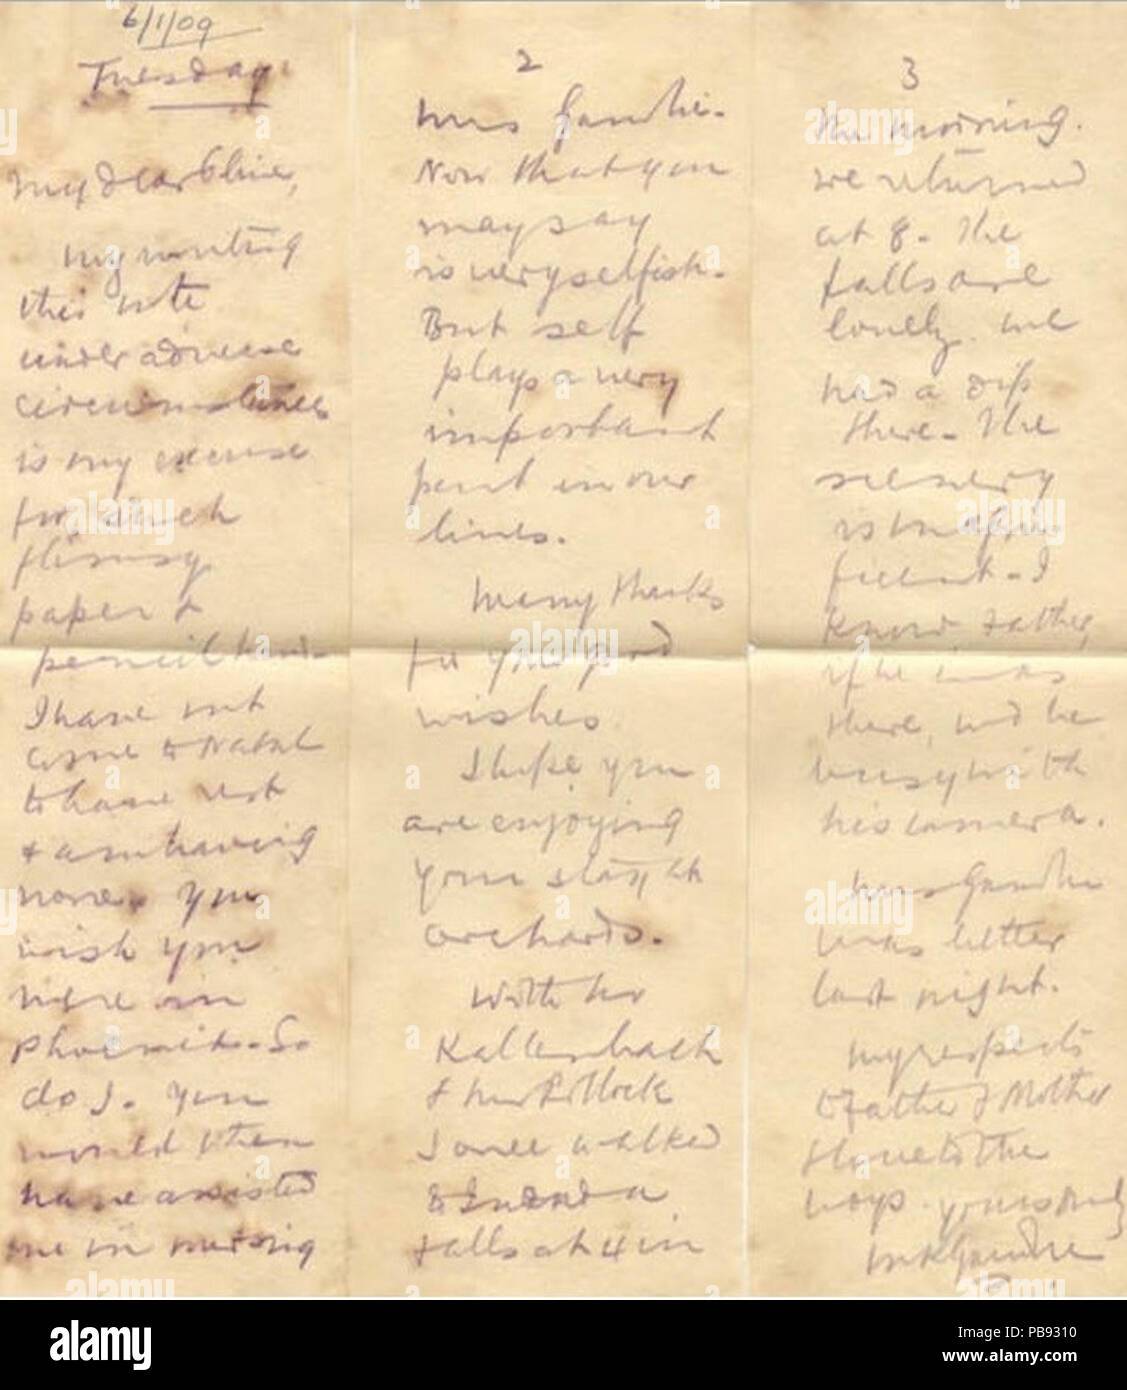 6/1/09
Tuesday
My dear Olive,
my writing
this note
under adverse
circumstances
is my excuse
for such
flimsy
paper &
pencil hand.
I have not
come to Natal
to have rest
& am having
none. You
wish you
were in
Phoenix. So
do I. You
would then
have assisted
me in nursing
2
Mrs Gandhi.
Now that you
may say
is very selfish.
But self
plays a very
important
part in our
lives.
Many thanks
for your good
wishes
I hope you
are enjoying
your stay at
orchards.
With Mr
Kallenbach
& Mr Pollock
I once walked
to Inanda
falls at 4 in
3
the morning.
we returned
at 8. The
falls are
lovely. We
had a dip
there. The
scenery
is magni-
ficent. I
know father,
if he was
there, wd be
busy with
his camera.
Mrs Gandhi
was better
last night.
My respects
to father & Mother
& love to the
boys. yours truly
MKGandhi
alamy
PB9310
www.alamy.com